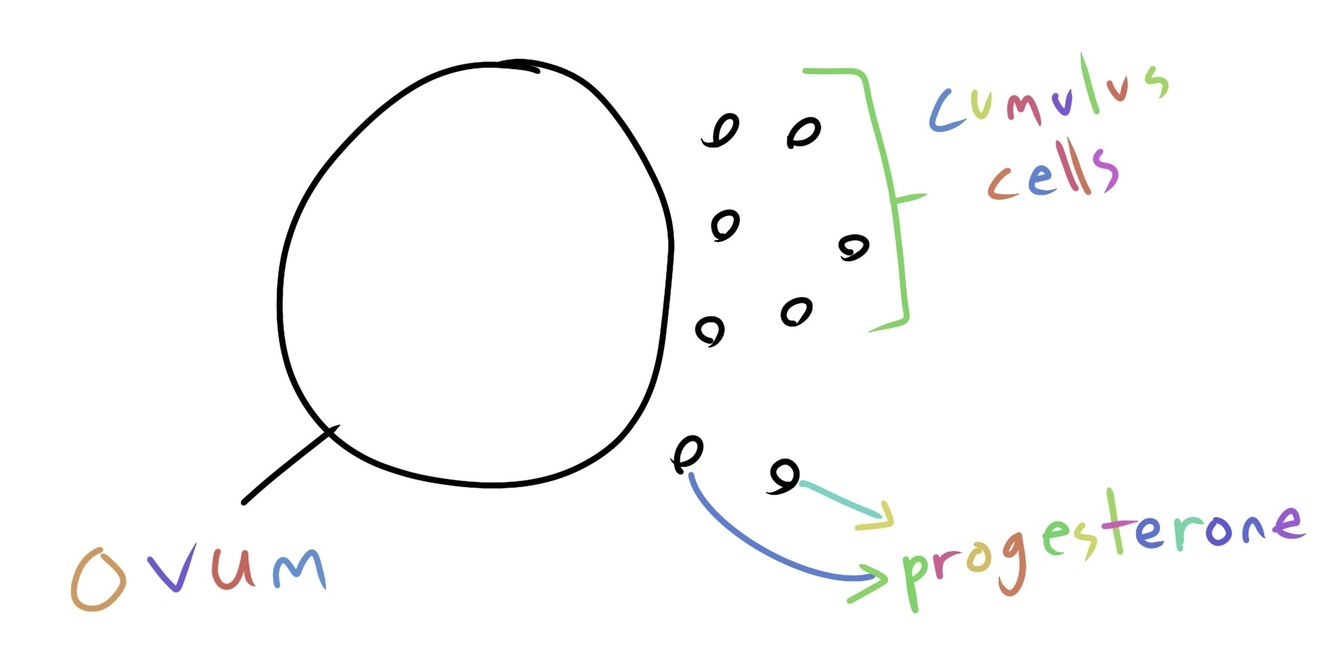 cumulus
cells
ovum
progesterone